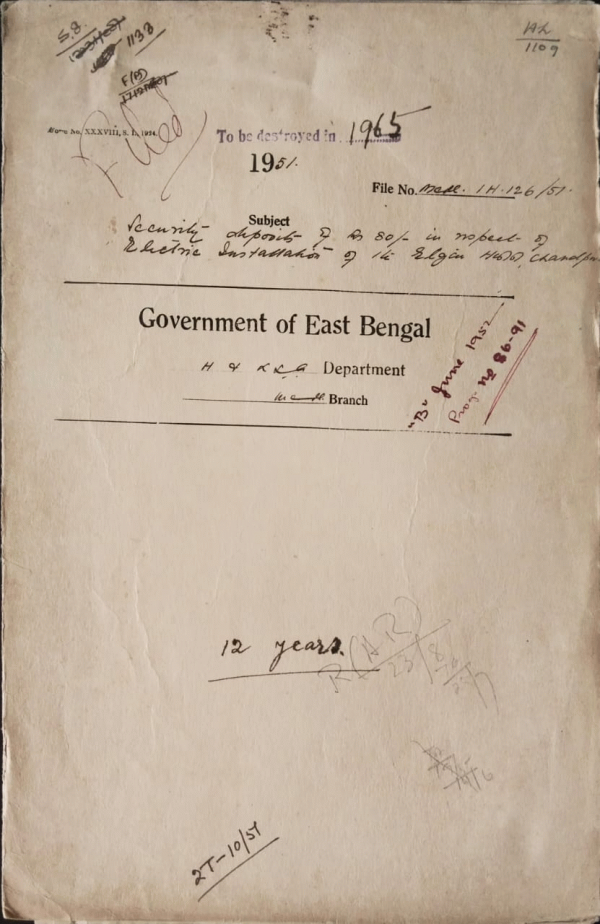 S.B.
1138
HL
1109
F(B)
Filed
Form No. XXXVIII, S. D., 1924.
To be destroyed in 1965
1951.
File No. Medl. 1H-126/51.
Subject
Security deposit of Rs 80/- in respect of
Electric Installation of the Elgin Hospl, Chandpur
Government of East Bengal
H & L.S.G Department
Medl. Branch
"B" June 1952
Prog. No 86-91
12 years.
R(HR)
23/8
2T-10/51